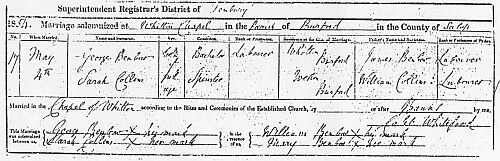 Superintendent Registrar's District of Tenbury
1854. Marriage solemnized at Whitton Chapel in the Parish of Burford in the County of Salop
No. When Married. Name and Surname. Age. Condition. Rank or Profession. Residence at the Time of Marriage. Father's Name and Surname. Rank or Profession of Father.
17 May 4th George Benbow Bachelor Labourer Whitton Burford James Benbow Labourer
Sarah Collins full age Spinster Weston Burford William Collins Labourer
Married in the Chapel of Whitton according to the Rites and Ceremonies of the Established Church, by or after Banns by me,
Whitefoord
This Marriage was solemnized between us, George Benbow X his mark in the Presence of us, William Benbow X his mark
Sarah Collins X her mark Mary Benbow X her mark